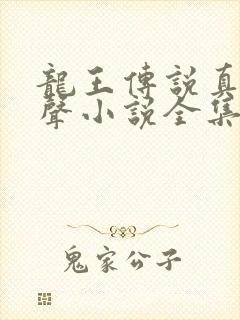 龍王傳說真
聲小說全集
鬼家公子